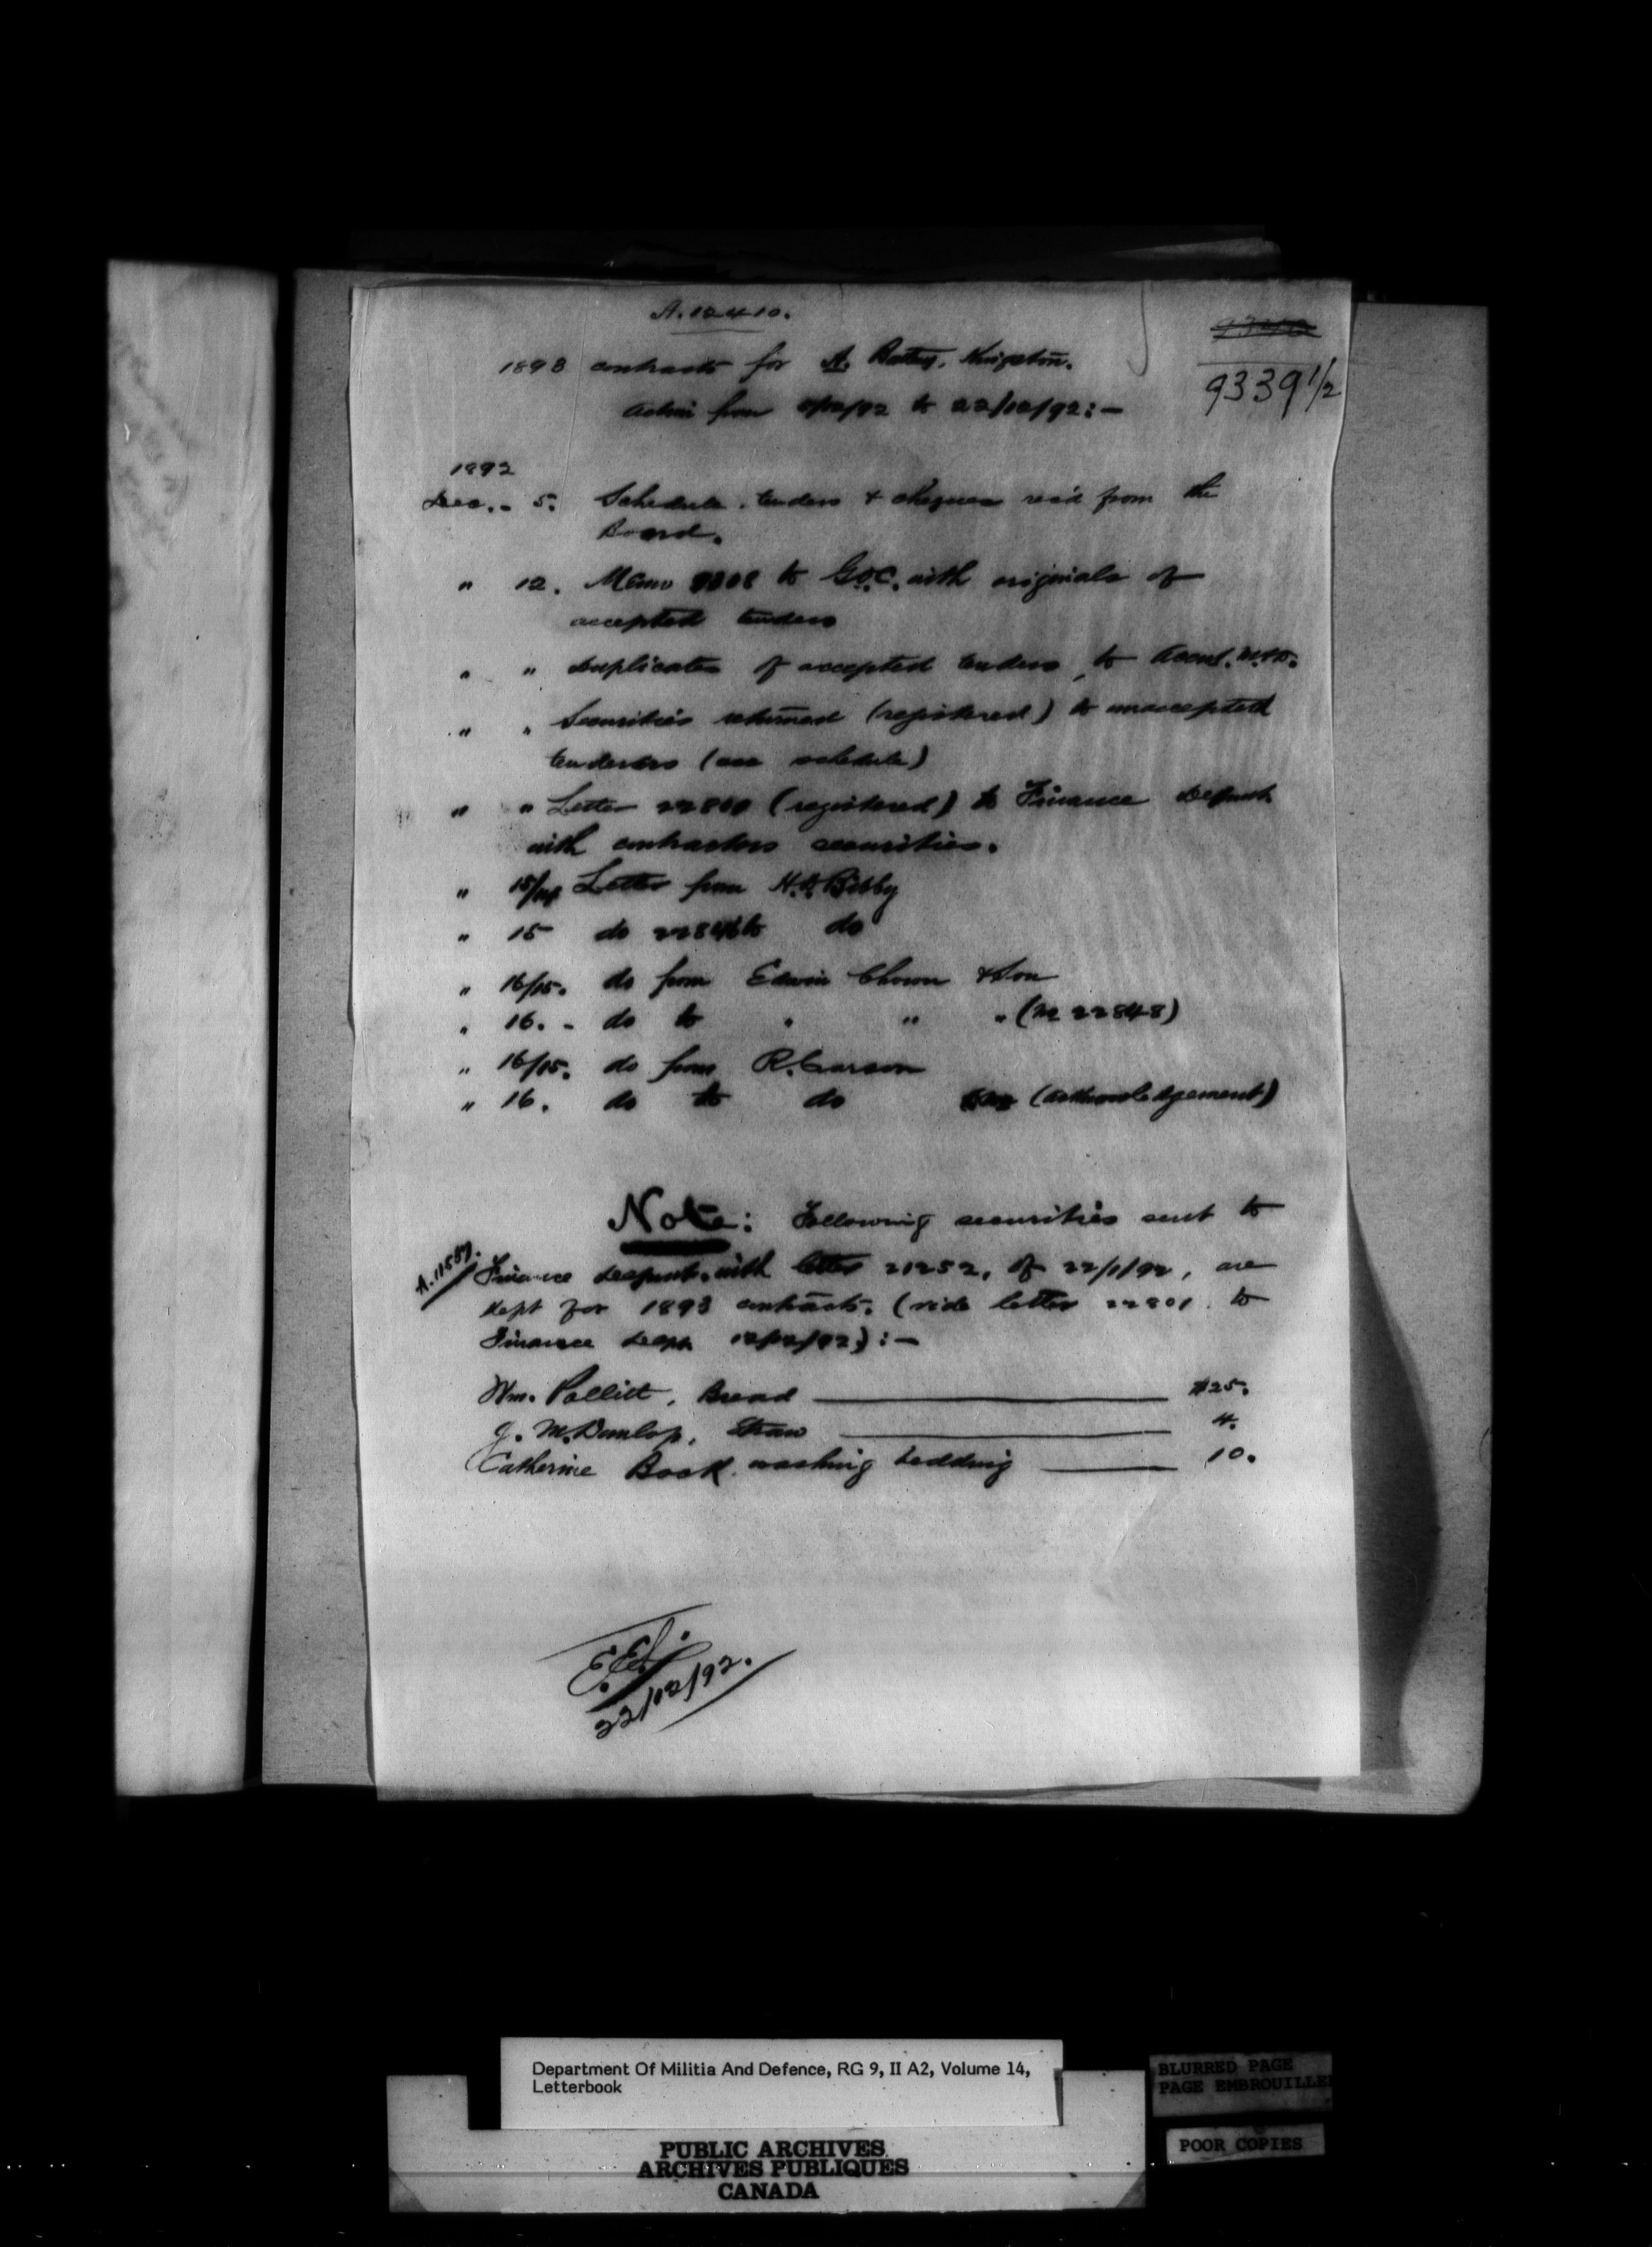 A. 12410.
9339 1/2
1893 contracts for A. Battery, Kingston.
Action from 5/12/92 to 22/12/92:—
1892
Dec. 5. Schedule, tenders & cheques rec'd from the
Board.
" 12. Memo 9308 to G.O.C. with originals of
accepted tenders
" " Duplicates of accepted tenders, to Acct. M.&D.
" " Securities returned (registered) to unaccepted
tenderers (see schedule)
" " Letter 22801 (registered) to Finance Depmt
with contractors securities.
" 15/14 Letter from H.D. Bibby
" 15 do 22846 to do
" 16/15. do from Edwin Chown & Son
" 16. - do to " " " (No 22848)
" 16/15. do from R. Carson
" 16. do to do (acknowledgement)
Note: Following securities sent to
A. 11587.
Finance Depmnt. with letter 21252, of 22/1/92, are
kept for 1893 contracts. (vide letter 22801 to
Finance Dept 12/12/92):—
Wm. Pollitt, Bread $25.
J. M. Dunlop, Straw 4.
Catherine Book, washing bedding 10.
22/12/92.
Department Of Militia And Defence, RG 9, II A2, Volume 14,
Letterbook
BLURRED PAGE
PAGE EMBROUILLE
POOR COPIES
PUBLIC ARCHIVES
ARCHIVES PUBLIQUES
CANADA